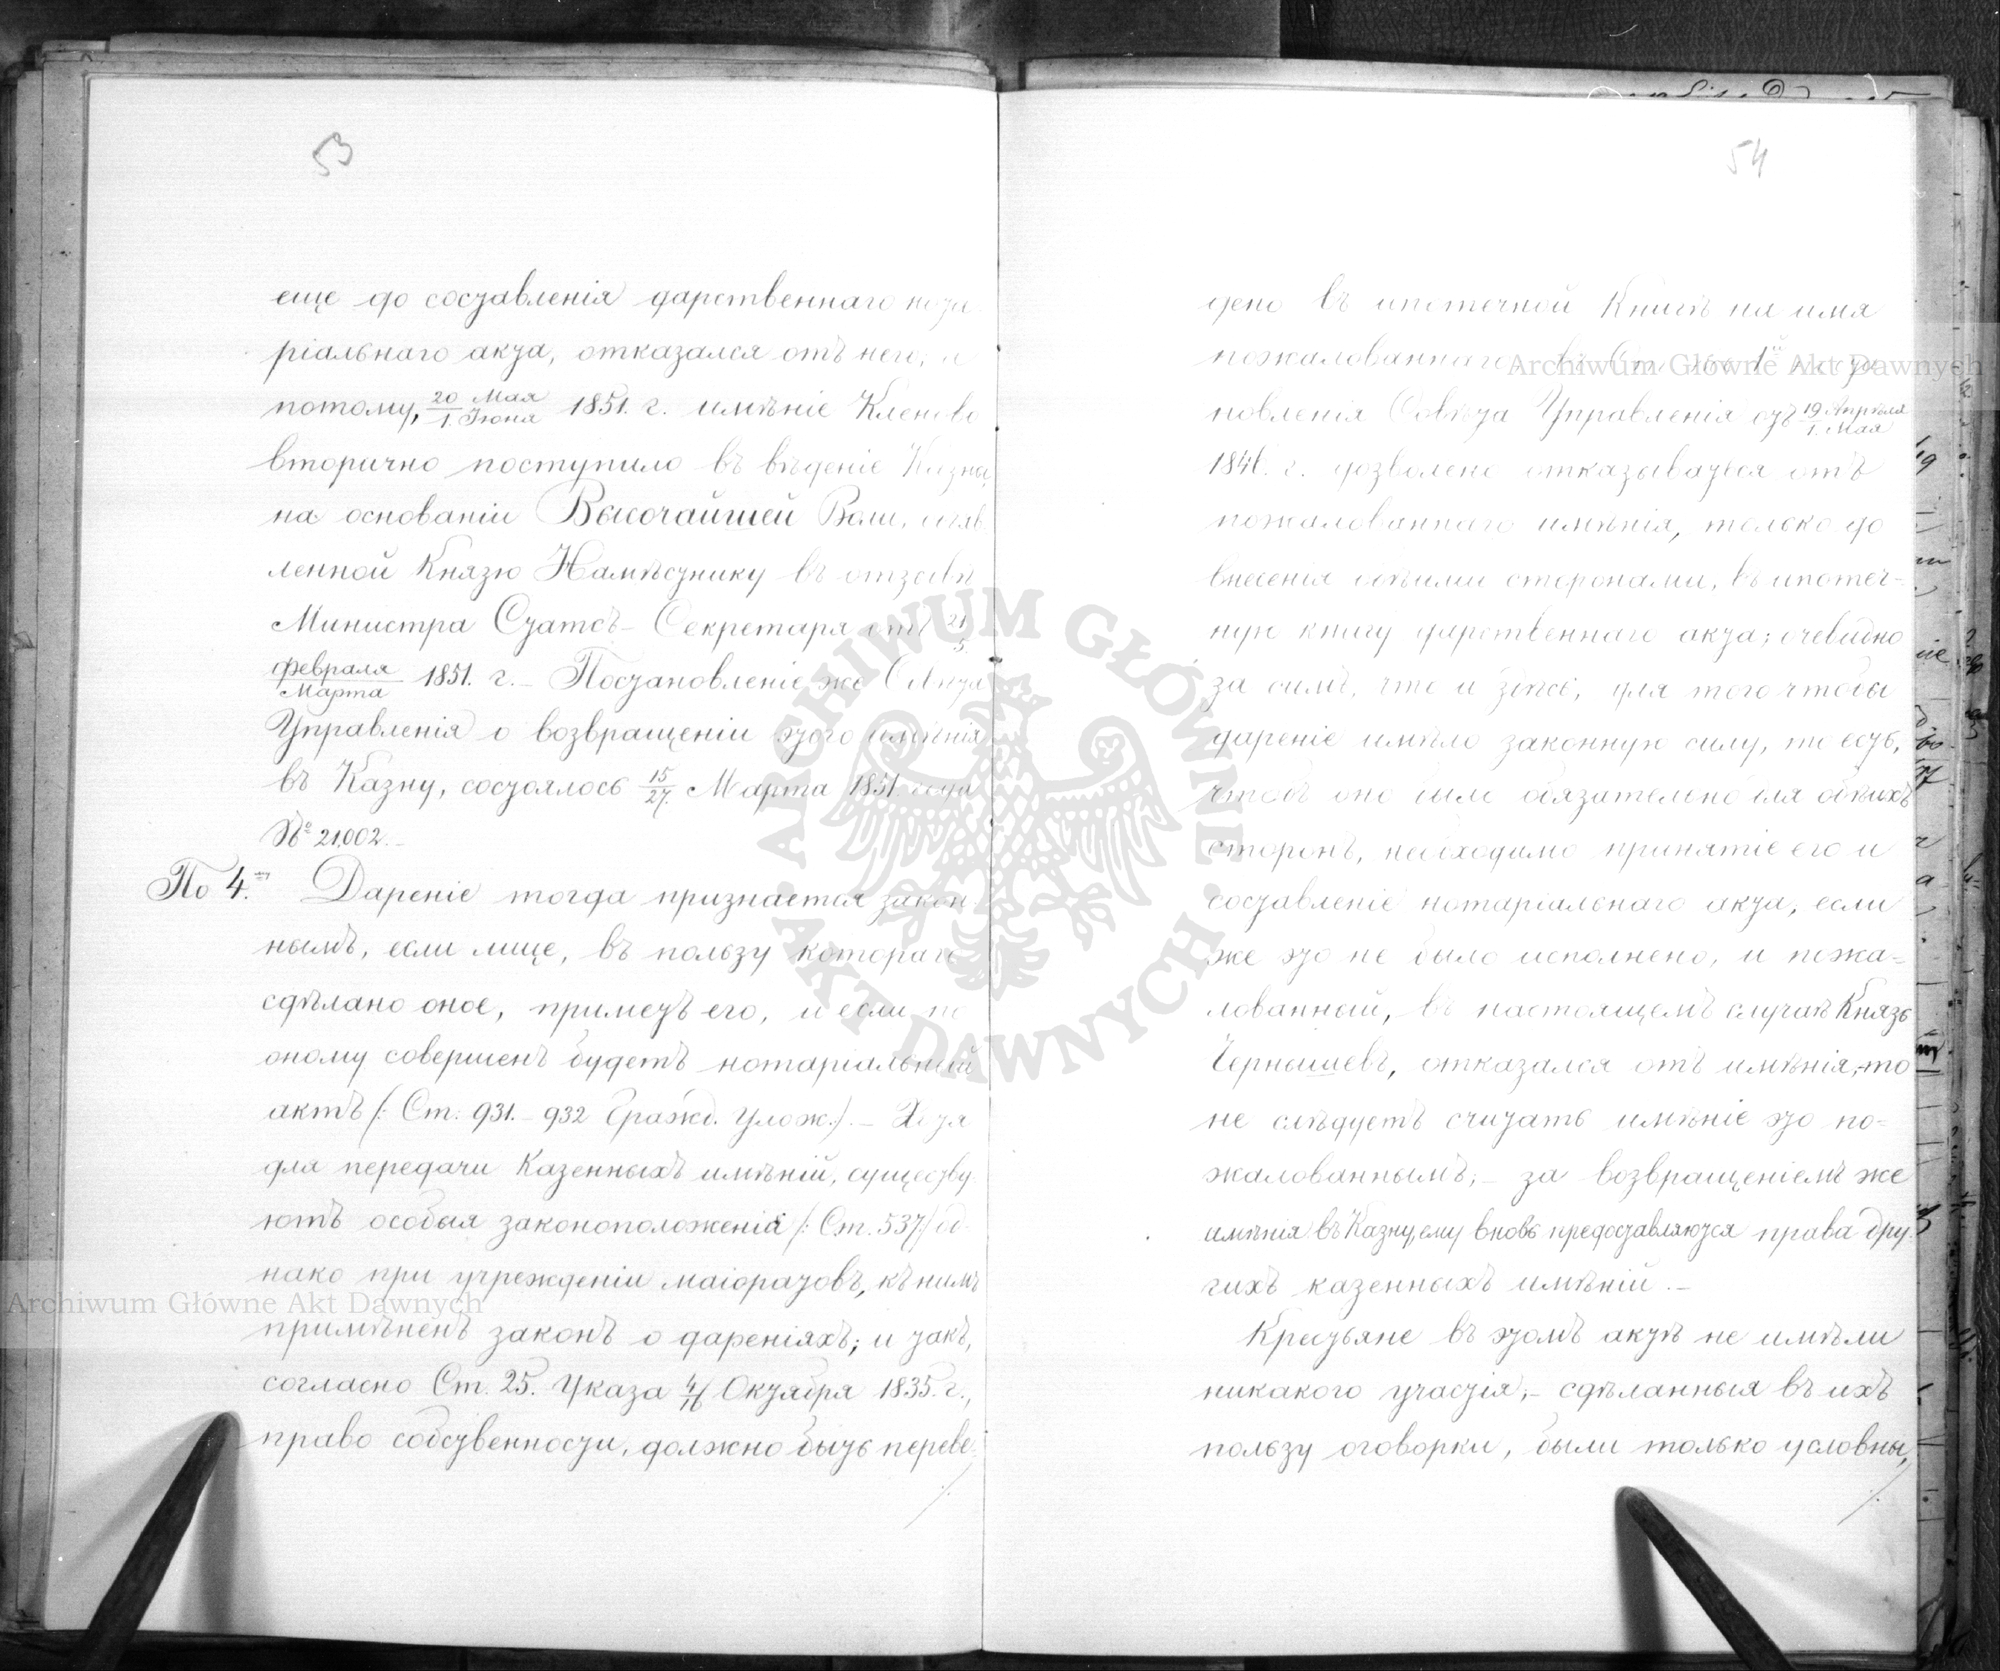 53
еще до составленія дарственнаго нота
ріальнаго акта, отказался отъ него, и
потому, 20 Мая / 1. Іюня 1851. г. имѣніе Кленово
вторично поступило въ вѣденіе Казны,
на основаніи Высочайшей Воли, изъяв
ленной Князю Намѣстнику въ отзывѣ
Министра Статсъ-Секретаря отъ 21 / 5.
Февраля / Марта 1851. г. — Постановленіе же Совѣта
Управленія о возвращеніи этого имѣнія
въ Казну, состоялось 15/27. Марта 1851. года
№ 21,002. —
По 4. Дареніе тогда признается закон
нымъ, если лице, въ пользу котораго
сдѣлано оное, приметъ его, и если по
оному совершенъ будетъ нотаріальный
актъ (: Ст. 931. – 932 Гражд. Улож.:). — Хотя
для передачи Казенныхъ имѣній, существу
ютъ особыя законоположенія (: Ст. 537:) од-
нако при учрежденіи маіоратовъ, къ нимъ
примѣненъ законъ о дареніяхъ; и такъ,
согласно Ст. 25. Указа 4/16 Октября 1835. г.,
право собственности, должно быть переве-
54
дено въ ипотечной Книгѣ на имя
пожалованнаго 1й
новленія Совѣта Управленія отъ 19 Апрѣля / 1. Мая
г. дозволено отказываться отъ
пожалованнаго имѣнія, только до
внесенія обѣими сторонами, въ ипотеч-
ную книгу дарственнаго акта; очевидно
за симъ, что и здѣсь, для того чтобы
дареніе имѣло законную силу, то есть,
чтобъ оно было обязательно для обѣихъ
сторонъ, необходимо принятіе его и
составленіе нотаріальнаго акта, если
же это не было исполнено, и пожа-
лованный, въ настоящемъ случаѣ Князь
Чернышевъ, отказался отъ имѣнія, – то
не слѣдуетъ считать имѣніе это по-
жалованнымъ; — за возвращеніемъ же
имѣнія въ Казну, ему вновь предоставляются права дру
гихъ казенныхъ имѣній. —
Крестьяне въ этомъ актѣ не имѣли
никакого участія, – сдѣланныя въ ихъ
пользу оговорки, были только условны,
Archiwum Główne Akt Dawnych
Archiwum Główne Akt Dawnych
ARCHIWUM GŁÓWNE AKT DAWNYCH